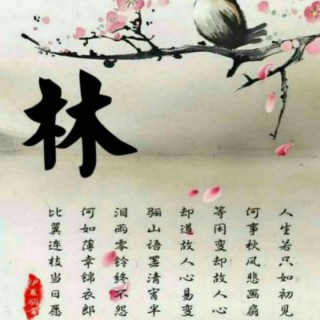 林
人生若只如初见
何事秋风悲画扇
等闲变却故人心
却道故人心易变
骊山语罢清宵半
泪雨零铃终不怨
何如薄幸锦衣郎
比翼连枝当日愿